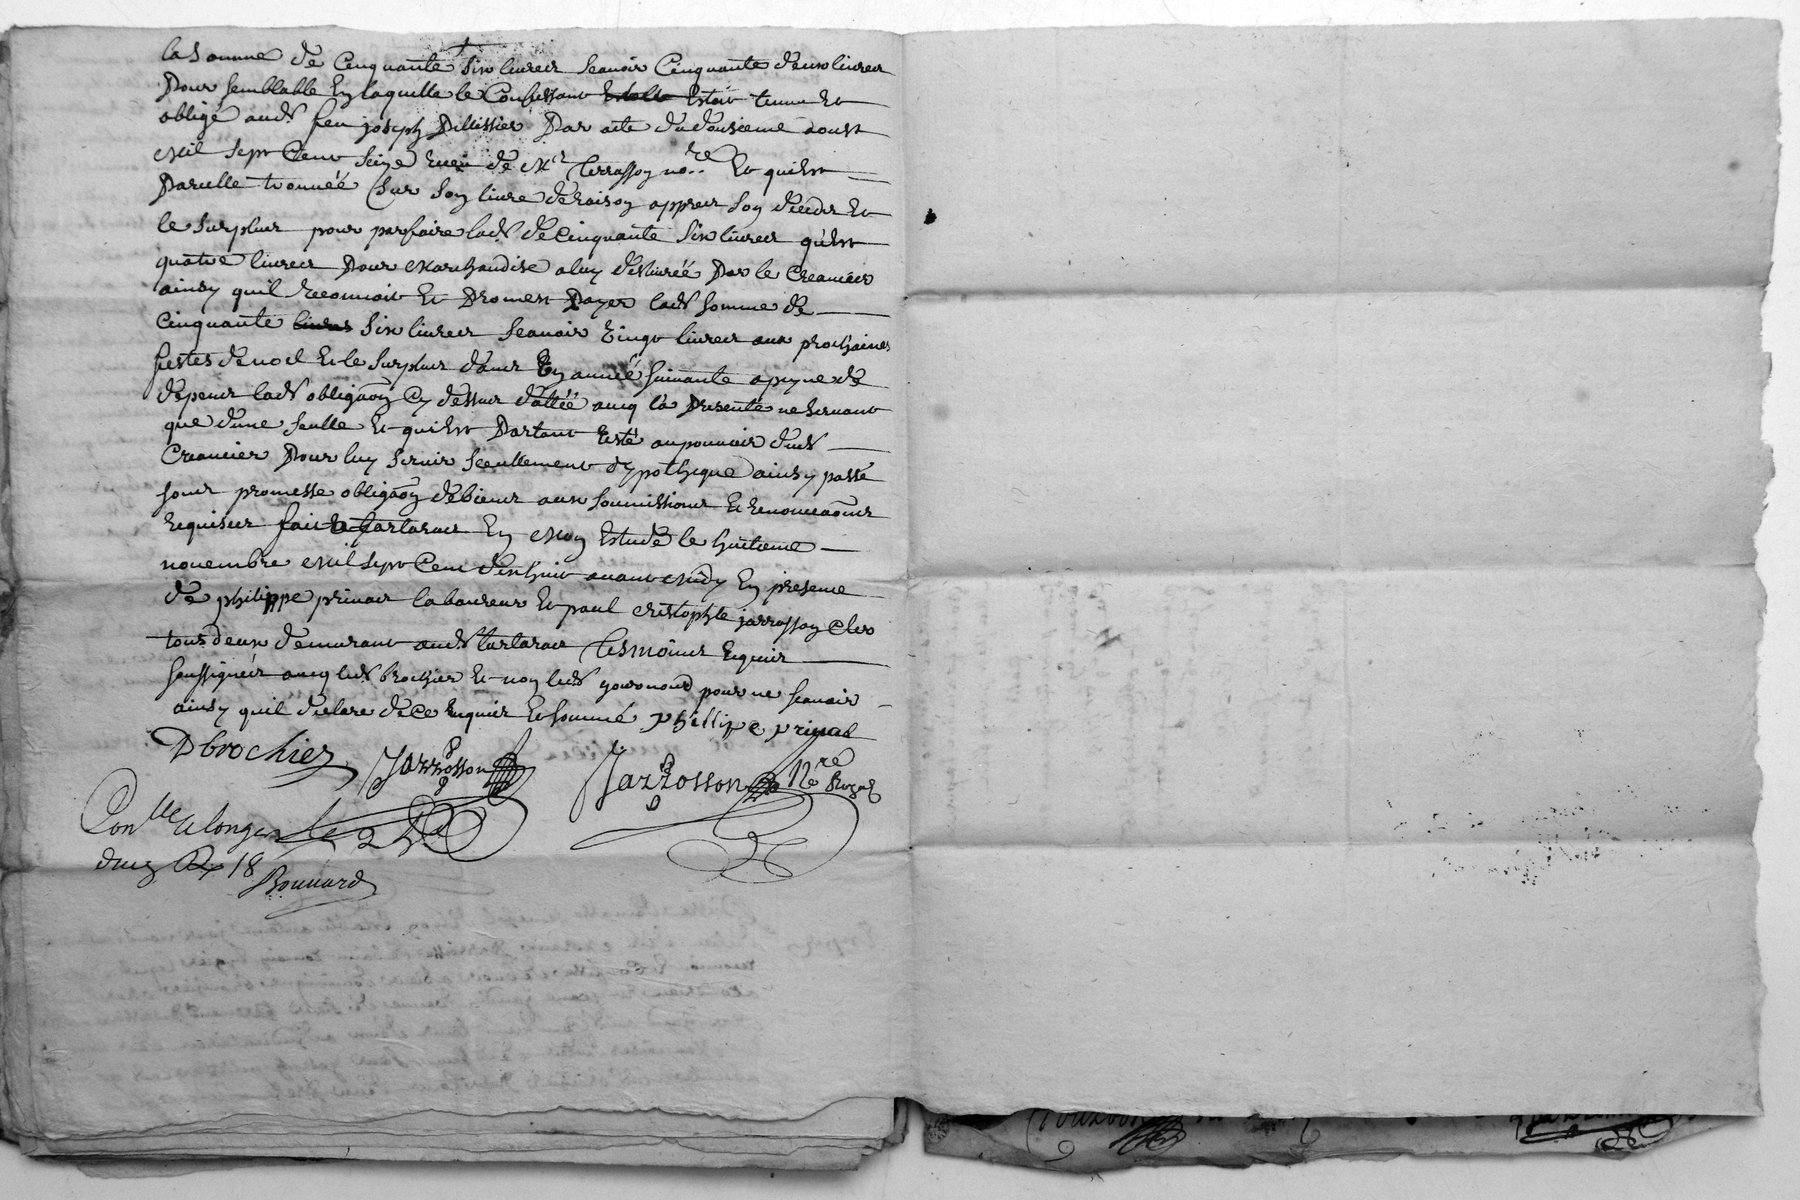 la somme de Cinquante six livres scavoir Cinquante deux livres
Pour semblable En laquelle le Confessant Estoit tenu Et
obligé aud. feu joseph Pellissier Par acte du dousieme aoust
Mil sept Cent seize receu de Me Terrasson nore Et quil est
Parcelle trouvéé sur son livre de raison appres son deceds Et
le surplus pour parfaire lad. de Cinquante six livres quest
quatre livres Pour Marchandise a luy deslivréé Par le Creancier
ainsy quil reconnoit Et Promest Payer lad. somme de
Cinquante six livres scavoir vingt livres aux prochaines
festes de noel Et le surplus dans En année suivante a peyne de
depens lad. obligaon Cy dessus dattéé avec la Presente ne servant
que dune seulle Et qui est Partant Esté au pouvoir dud.
Creancier Pour luy servir seullement dypotheque ainsy passé
sous promesse obligaon de biens aux soumissions Et renonciaons
requises fait a tartaras En Mon Estude le huitieme
novembre Mil sept Cent dix huit avant Midy En presence
de philippe prinas laboureur Et paul cristophle jarrosson Clerc
tous deux demurant aud. tartaras Tesmoins requis
soussignés avec led. brochier Et non led. pour ne scavoir
ainsy quil declare de Ce Enquis Et sommé phillipe prinas
D brochier Jarrosson Jarrosson Nre Royal
Conlle a longes le
Bonnard